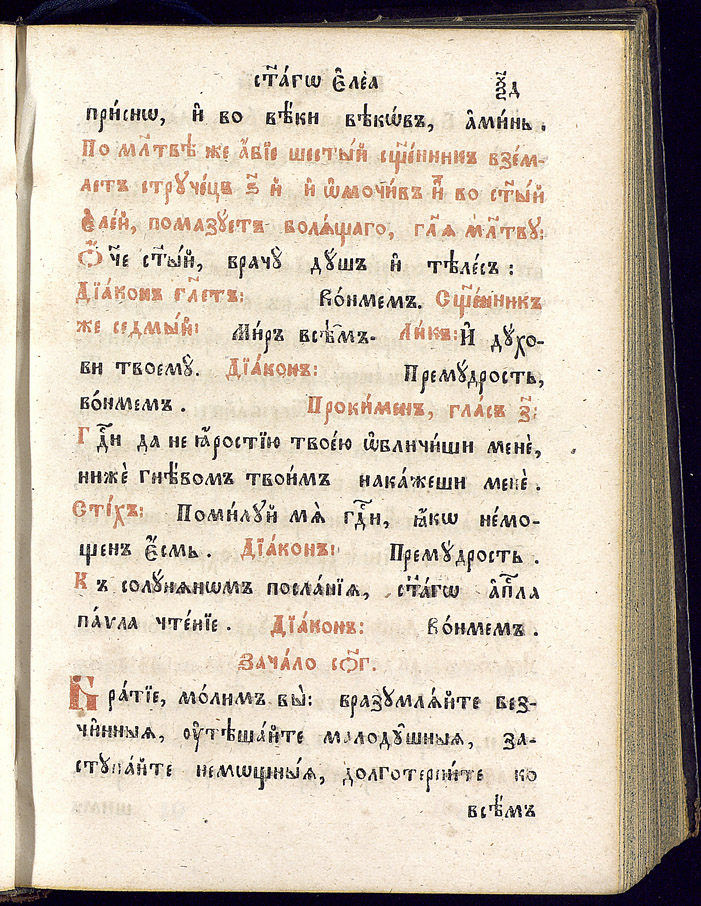 ст҃а́гѡ є҆ле́а х҃д
при́снѡ, и҆ во вѣ́ки вѣкѡ́въ, а҆ми́нь.
По мл҃твѣ же а҆́бїе шесты́й сщ҃е́нникъ взе́м-
летъ стру́чецъ з҃ й и҆ ѡ҆мочи́въ и҆̀ во ст҃ы́й
є҆ле́й, помазуетъ боля́щаго, гл҃я мл҃тву:
Ѻ҆́ч҃е ст҃ы́й, врачу̀ ду́шъ и҆ тѣле́съ :
Дїа́конъ гл҃етъ: Во́нмемъ. Сщ҃е́нникъ
же седмы́й: Ми́ръ всѣ́мъ. Ли́къ: И҆ ду́хо-
ви твоемꙋ̀. Дїа́конъ: Премꙋ́дрость,
во́нмемъ. Проки́менъ, гла́съ з҃:
Гдⷭ҇и да не ꙗ҆́ростїю твое́ю ѡ҆бличи́ши менѐ,
нижѐ гнѣ́вомъ твои́мъ нака́жеши менѐ.
Сті́хъ: Поми́лꙋй мѧ̀ гдⷭ҇и, ꙗ҆́кѡ не́мо-
щенъ є҆́смь. Дїа́конъ: Премꙋ́дрость.
Къ солꙋ́нѧнѡмъ посла́нїѧ, ст҃а́гѡ а҆пⷭ҇ла
па́ѵла чте́нїе. Дїа́конъ: Во́нмемъ.
Зача́ло со҃г.
Бра́тїе, мо́лимъ вы̀: вразꙋмлѧ́йте без-
чи́нныѧ, ᲂу҆тѣша́йте малодꙋ́шныѧ, за-
стꙋпа́йте немощны́ѧ, долготерпи́те ко
всѣ́мъ